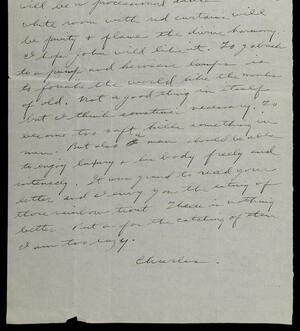 will be a processional dance
white room with red curtains will
be purity & flame the divine harmony.
I hope John will like it. To go back
to a pump and kerosene lamps is
to forsake the world like the monks
of old. Not a good thing in itself
but I think sometimes necessary. To
become too soft kills something in
man. But also a man should be able
to enjoy luxury & his body freely and
intensely. It was grand to read your
letter and I envy you the eating of
those rainbow trout. There is nothing
better. But as for the catching of them
I am too lazy.
Charles.